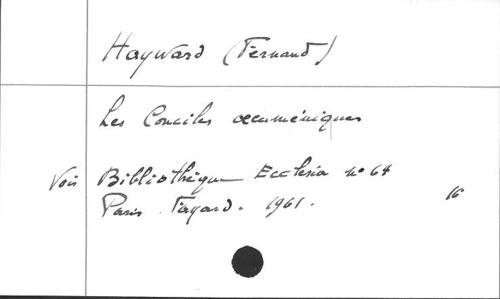 Hayward (Fernand)
Les Conciles œcuméniques
Voir Bibliothèque Ecclesia no 64
Paris. Fayard. 1961. 16